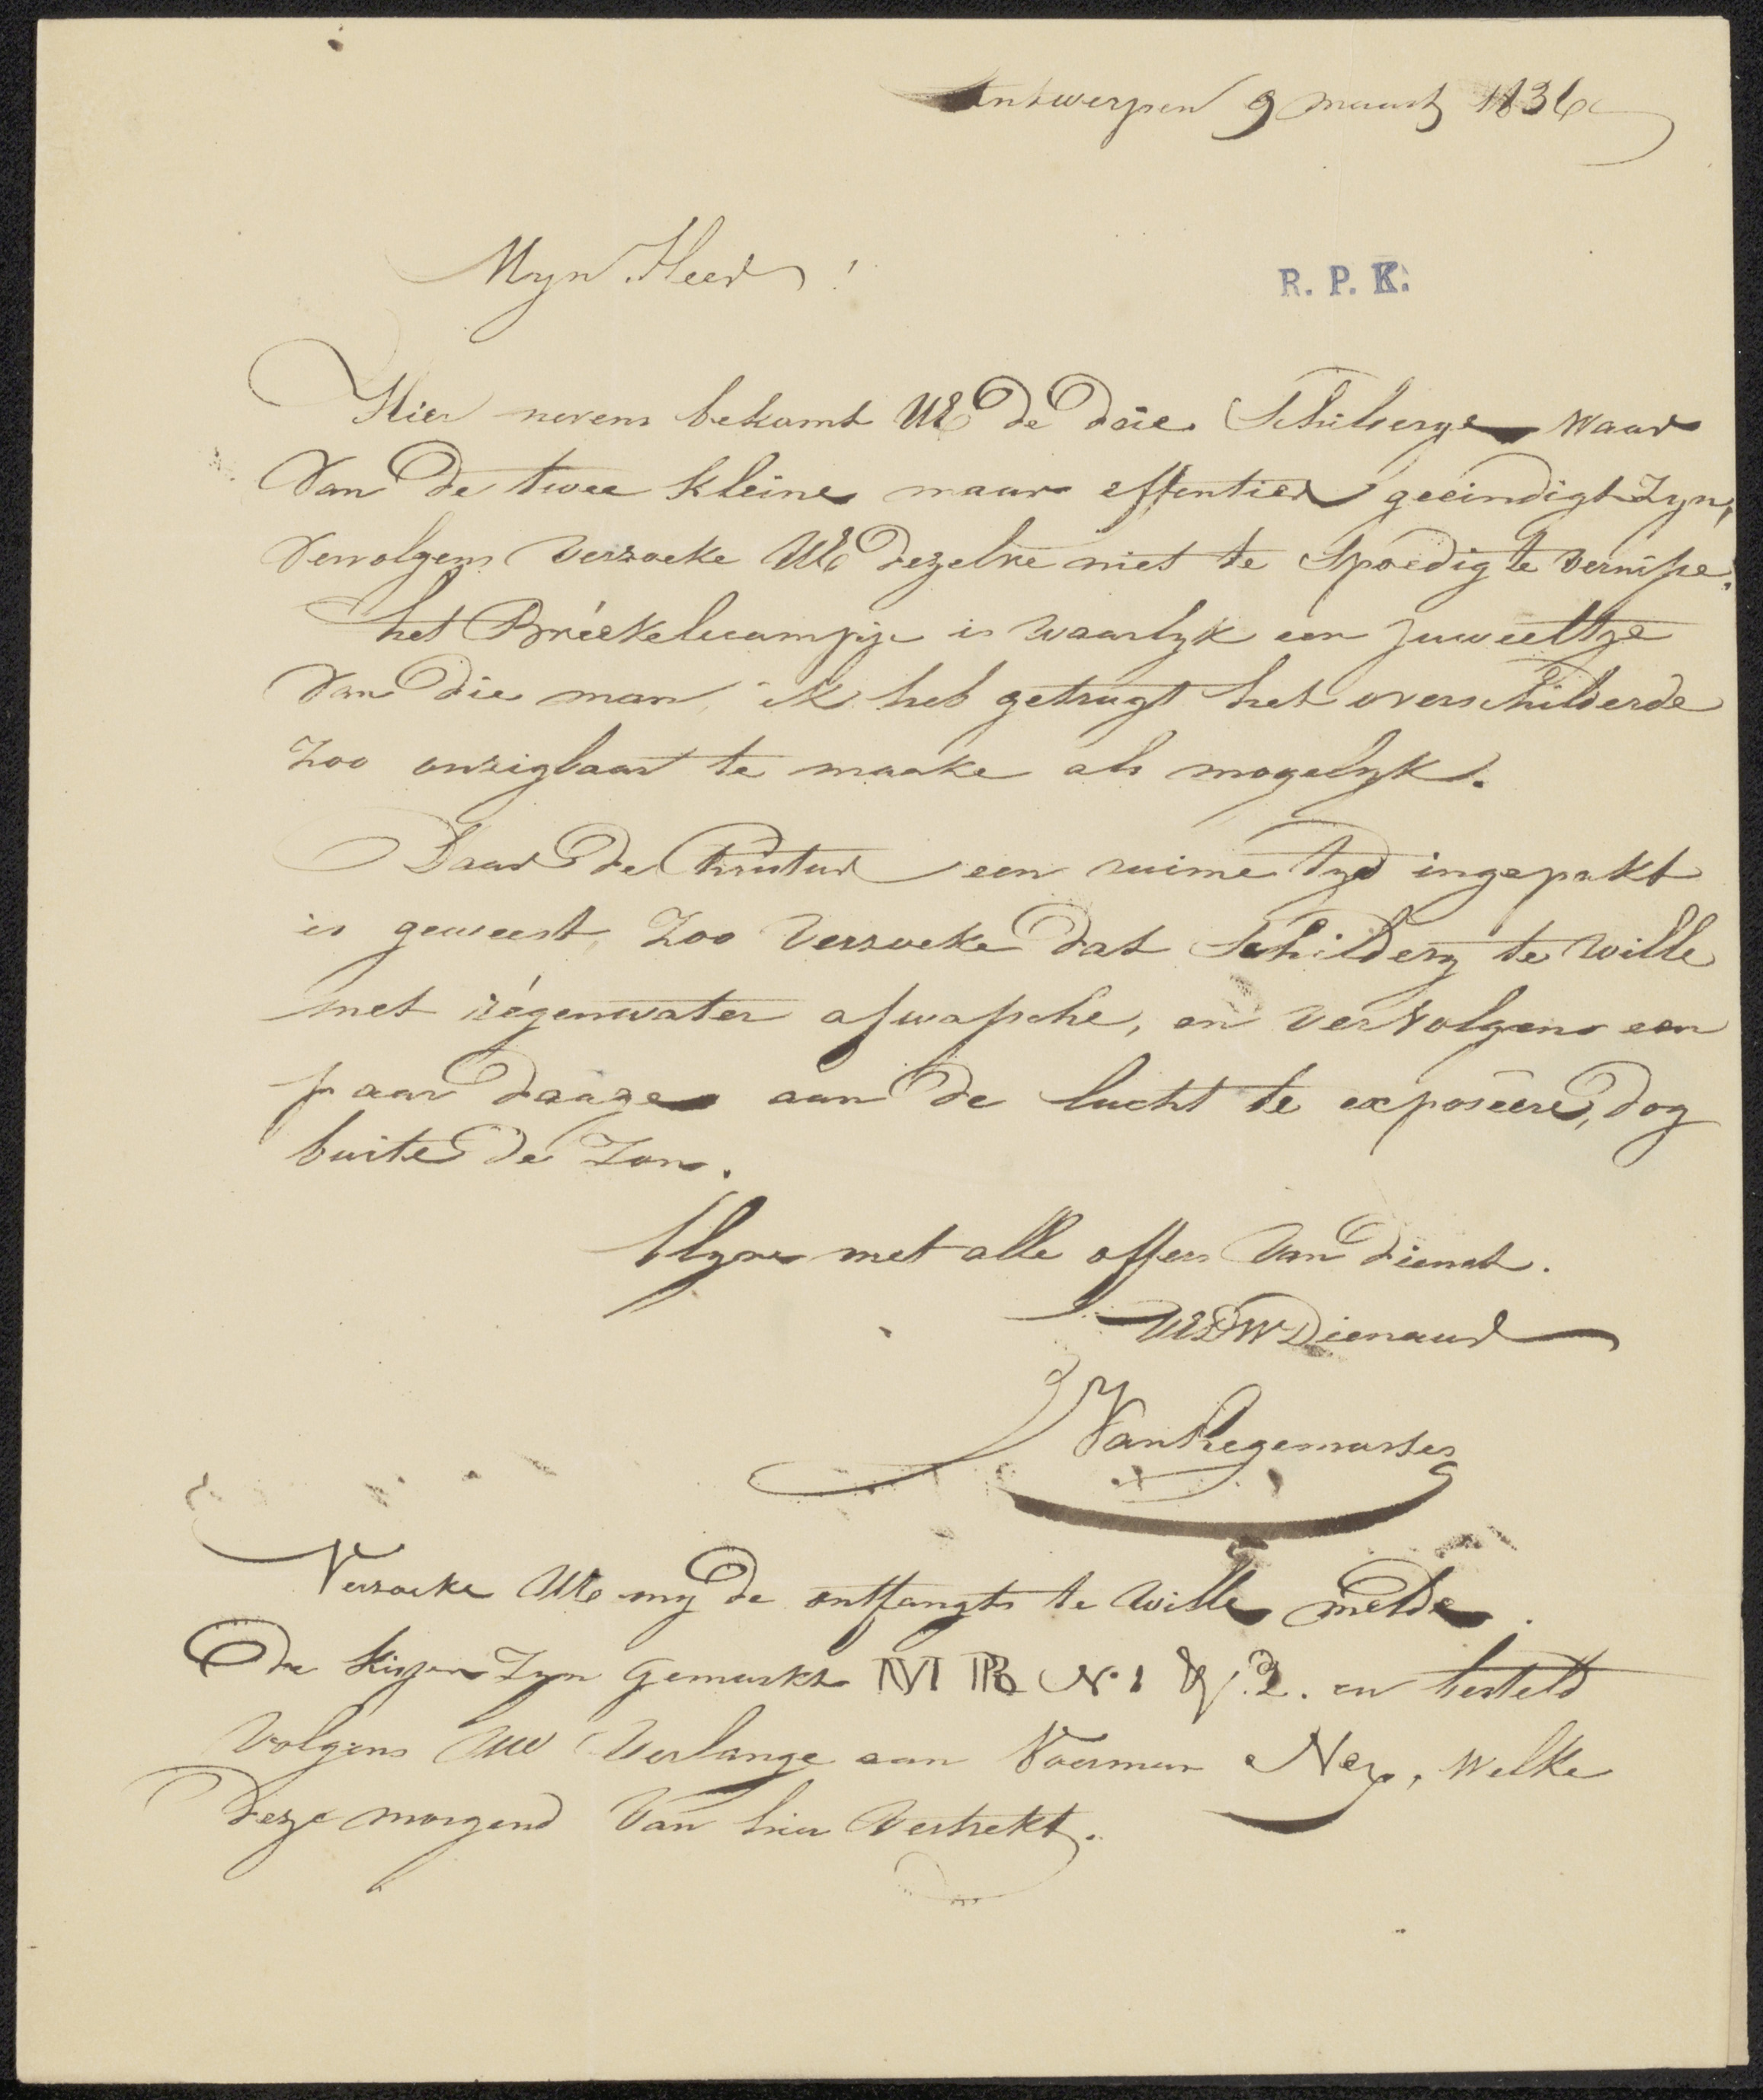 Antwerpen 9 maart 1836
Myn Heer!
R. P. K.
Hier nevens bekomt UE de drie Schilderye waar
Van de twee kleine maar effentier geeindigt Zyn,
Vervolgens Verzoeke UE dezelve niet te Spoedig te vernisse.
het Bréekelecampje is waarlyk een juweeltye
Van die man, ik heb getragt het overschilderde
Zoo onzigbaar te maake als mogelyk.
Daar de een ruime Tyd ingepakt
is geweest, Zoo Verzoeke dat Schildery te wille
met régenwater afwassche, en vervolgens een
paar daage aan de lucht te exposeere, dog
buite de Zon.
Blyve met alle offers Van dienst.
UEDW Dienaar
Van Regemorter
Verzoeke UE my de ontfangts te wille melde.
De kissen Zyn Gemarkt MB No 1 & 2. en besteld
Volgens UW Verlange aan Voerman Ney, welke
deze morgend Van hier Vertrekt.